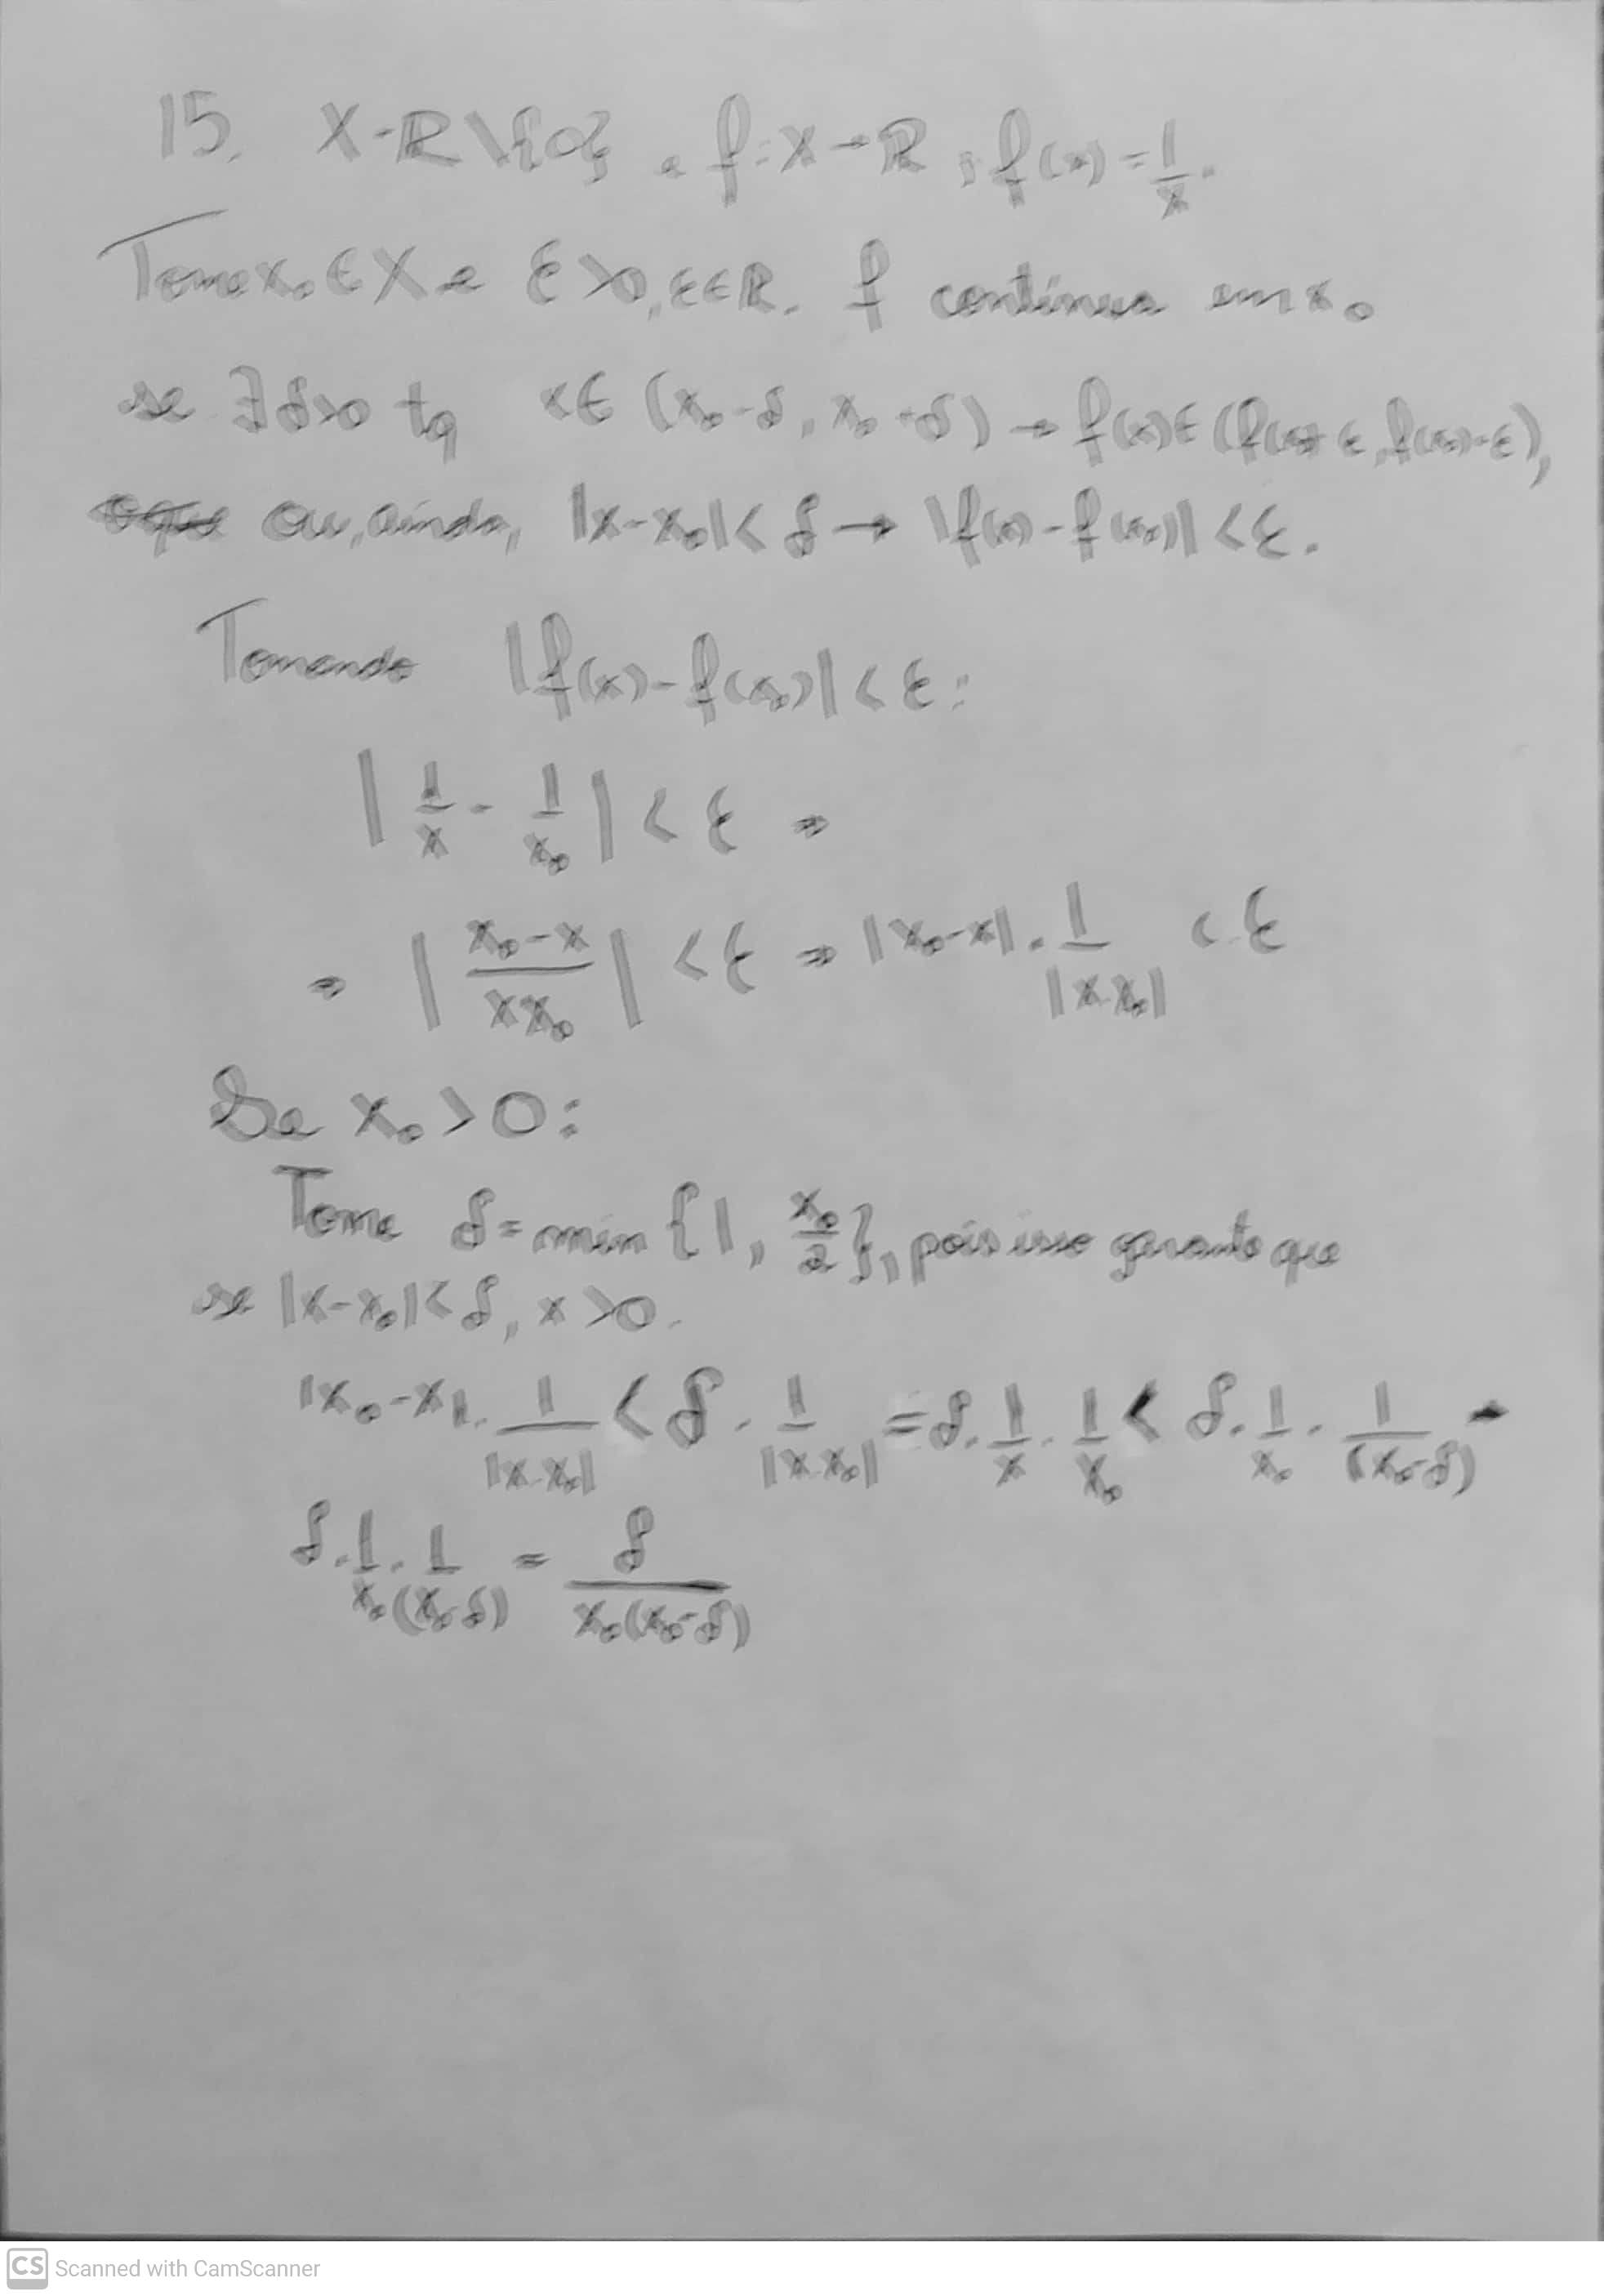 15. X = R \ {0} e f: X → R ; f(x) = 1/x.
Tome x₀ ∈ X e ε > 0, ε ∈ R. f contínua em x₀
se ∃ δ > 0 tq x ∈ (x₀ - δ, x₀ + δ) → f(x) ∈ (f(x₀) + ε, f(x₀) - ε),
ou, ainda, |x - x₀| < δ → |f(x) - f(x₀)| < ε.
Tomando |f(x) - f(x₀)| < ε:
|1/x - 1/x₀| < ε ⇒
⇒ |(x₀ - x)/(x x₀)| < ε ⇒ |x₀ - x| . 1/|x x₀| < ε
Se x₀ > 0:
Tome δ = min {1, x₀/2}, pois isso garante que
se |x - x₀| < δ, x > 0.
|x₀ - x| . 1/|x x₀| < δ . 1/|x x₀| = δ . 1/x . 1/x₀ < δ . 1/x₀ . 1/(x₀ - δ) =
δ . 1/x₀ . 1/(x₀ - δ) = δ/(x₀(x₀ - δ))
CS Scanned with CamScanner